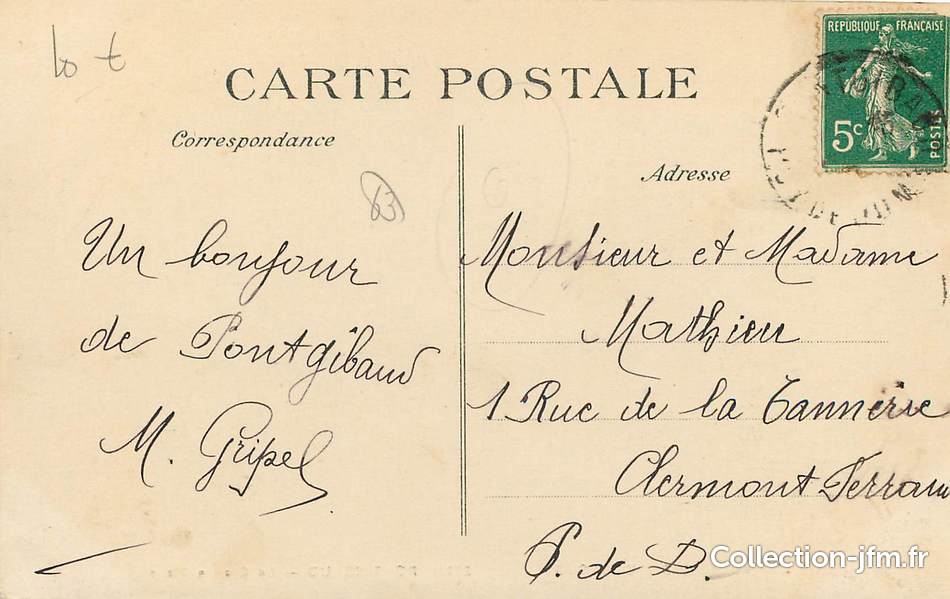 lot
CARTE POSTALE
RÉPUBLIQUE FRANÇAISE
5c
POSTES
Correspondance
Adresse
63
Un bonjour
de Pontgibaud
M. Gripel
Monsieur et Madame
Mathieu
1 Rue de la Tannerie
Clermont Ferran
P. de D.
Collection-jfm.fr